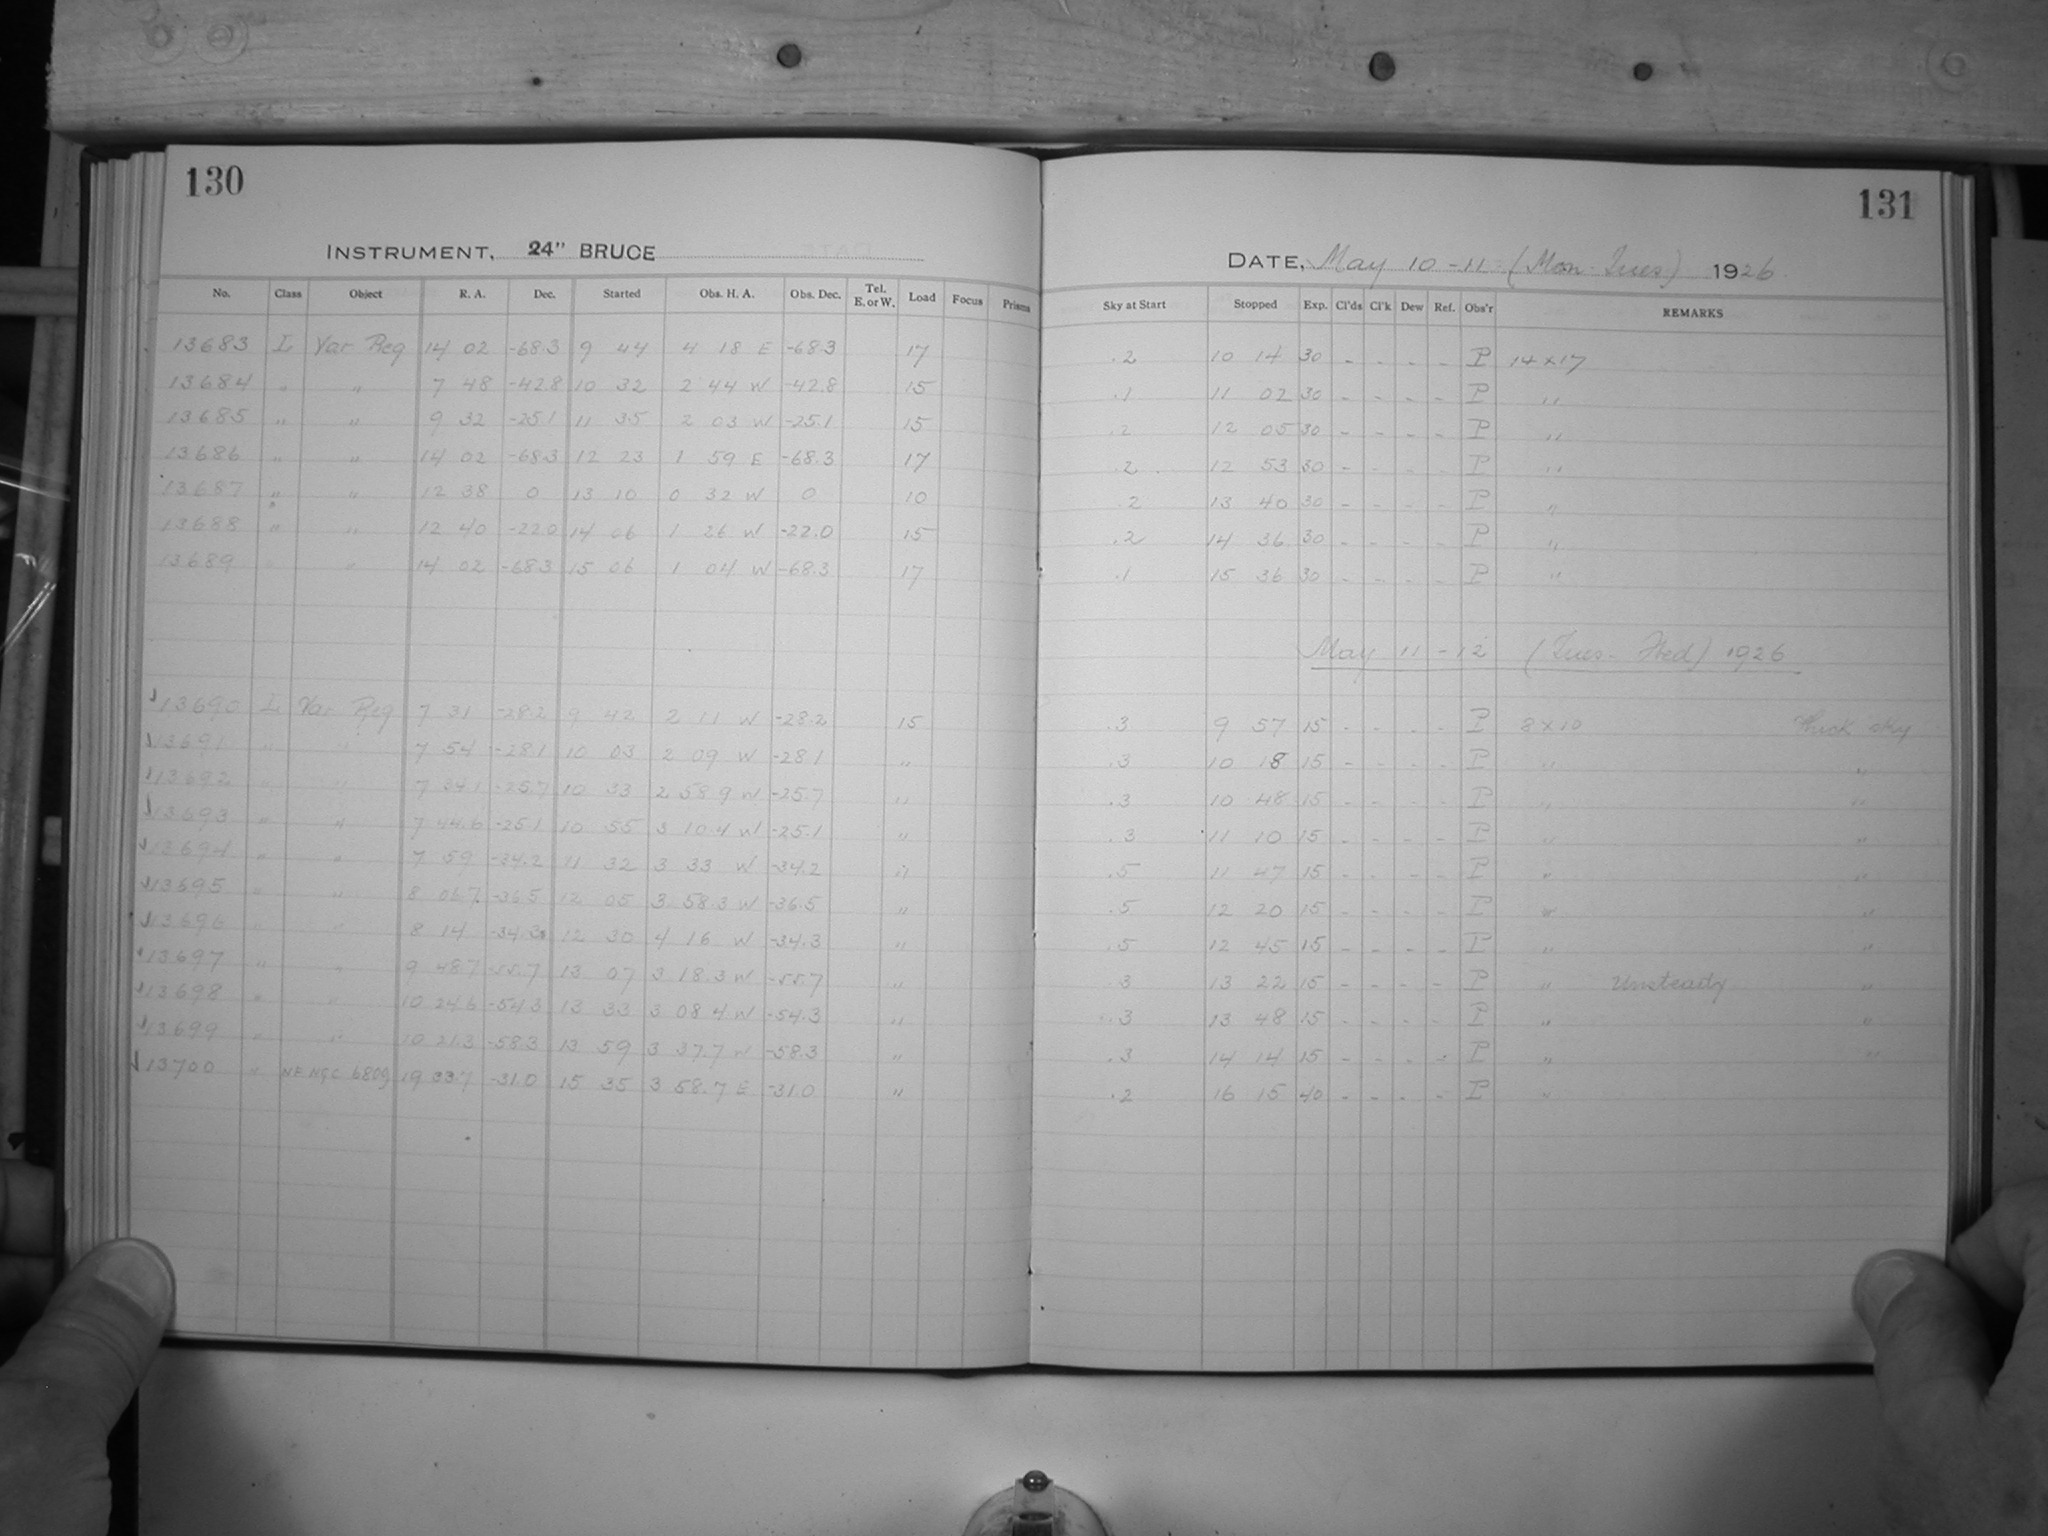 130
INSTRUMENT, 24" BRUCE
No. Class Object R. A. Dec. Started Obs. H. A. Obs. Dec. Tel. E. or W. Load Focus Prisms
13683 L Var Reg 14 02 -68.3 9 44 4 18 E -68.3 17
13684 " " 7 48 -42.8 10 32 2 44 W -42.8 15
13685 " " 9 32 -25.1 11 35 2 03 W -25.1 15
13686 " " 14 02 -68.3 12 23 1 59 E -68.3 17
13687 " " 12 38 0 13 10 0 32 W 0 10
13688 " " 12 40 -22.0 14 06 1 26 W -22.0 15
13689 " " 14 02 -68.3 15 06 1 04 W -68.3 17
13690 L Var Reg 7 31 -28.2 9 42 2 11 W -28.2 15
13691 " " 7 54 -28.1 10 03 2 09 W -28.1 "
13692 " " 7 34.1 -25.7 10 33 2 58.9 W -25.7 "
13693 " " 7 44.6 -25.1 10 55 3 10.4 W -25.1 "
13694 " " 7 59 -34.2 11 32 3 33 W -34.2 "
13695 " " 8 06.7 -36.5 12 05 3 58.3 W -36.5 "
13696 " " 8 14 -34.3 12 30 4 16 W -34.3 "
13697 " " 9 48.7 -55.7 13 07 3 18.3 W -55.7 "
13698 " " 10 24.6 -54.3 13 33 3 08.4 W -54.3 "
13699 " " 10 21.3 -58.3 13 59 3 37.7 W -58.3 "
13700 " NE NGC 6809 19 33.7 -31.0 15 35 3 58.7 E -31.0 "
131
DATE, May 10-11 (Mon-Tues) 1926
Sky at Start Stopped Exp. Cl'ds Cl'k Dew Ref. Obs'r REMARKS
.2 10 14 30 - - - - P 14x17
.1 11 02 30 - - - - P "
.2 12 05 30 - - - - P "
.2 12 53 30 - - - - P "
.2 13 40 30 - - - - P "
.2 14 36 30 - - - - P "
.1 15 36 30 - - - - P "
May 11-12 (Tues-Wed) 1926
.3 9 57 15 - - - - P 8x10 Thick sky
.3 10 18 15 - - - - P " "
.3 10 48 15 - - - - P " "
.3 11 10 15 - - - - P " "
.5 11 47 15 - - - - P " "
.5 12 20 15 - - - - P " "
.5 12 45 15 - - - - P " "
.3 13 22 15 - - - - P " Unsteady "
.3 13 48 15 - - - - P " "
.3 14 14 15 - - - - P " "
.2 16 15 40 - - - - P "